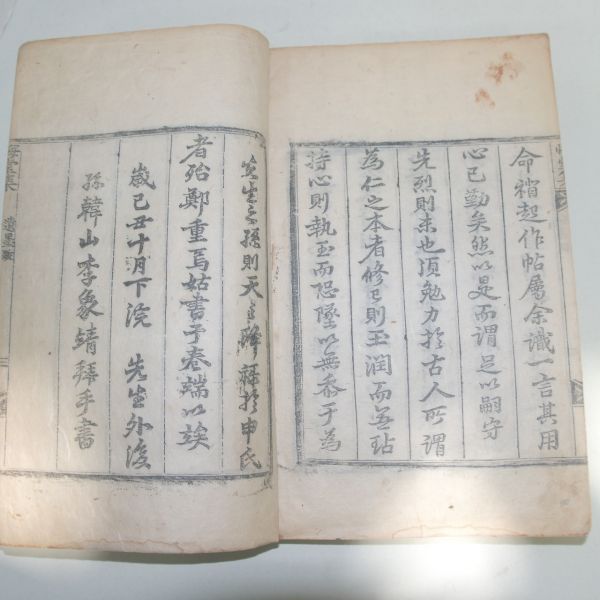 命褙起作帖屬余識一言其用
心已勤矣然以是而謂足以嗣守
先烈則未也須勉力於古人所謂
為仁之本者修己則玉潤而無玷
持心則執玉而恐墜以無忝于為
先生之孫則天之降祥於申氏
者殆鄭重焉姑書于卷端以竢
歲己丑十月下浣 先生外後
孫韓山李象靖拜手書
遺墨